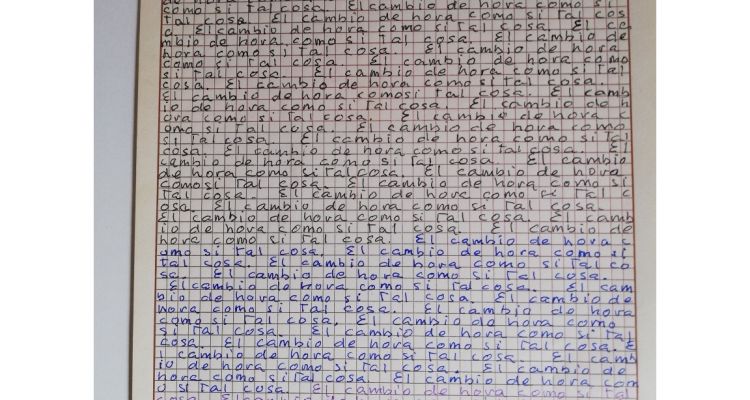 como si tal cosa. El cambio de hora como si
tal cosa. El cambio de hora como si tal cos
a. El cambio de hora como si tal cosa. El ca
mbio de hora como si tal cosa. El cambio de
hora como si tal cosa. El cambio de hora
como si tal cosa. El cambio de hora como
si tal cosa. El cambio de hora como si tal
cosa. El cambio de hora como si tal cosa.
El cambio de hora como si tal cosa. El camb
io de hora como si tal cosa. El cambio de h
ora como si tal cosa. El cambio de hora c
omo si tal cosa. El cambio de hora como
si tal cosa. El cambio de hora como si tal
cosa. El cambio de hora como si tal cosa. El
cambio de hora como si tal cosa. El cambio
de hora como si tal cosa. El cambio de hora
como si tal cosa. El cambio de hora como si
tal cosa. El cambio de hora como si tal c
osa. El cambio de hora como si tal cosa.
El cambio de hora como si tal cosa. El camb
io de hora como si tal cosa. El cambio de
hora como si tal cosa. El cambio de hora c
omo si tal cosa. El cambio de hora como si
tal cosa. El cambio de hora como si tal co
sa. El cambio de hora como si tal cosa.
El cambio de hora como si tal cosa. El cam
bio de hora como si tal cosa. El cambio de
hora como si tal cosa. El cambio de hora
como si tal cosa. El cambio de hora como
si tal cosa. El cambio de hora como si tal
cosa. El cambio de hora como si tal cosa. E
l cambio de hora como si tal cosa. El camb
io de hora como si tal cosa. El cambio de
hora como si tal cosa. El cambio de hora com
o si tal cosa. El cambio de hora como si tal